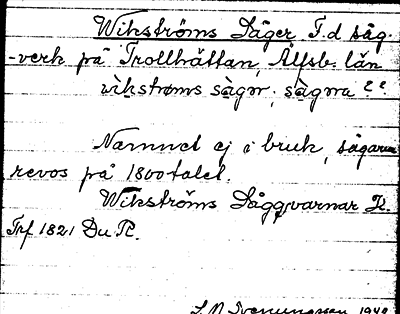 Wikströms Såger F.d såg-
-verk på Trollhättan, Älfsb. län
wikstrøms sàgør; sàgrra 2e
Namnet ej i bruk, sågarna
revos på 1800talet.
Wikströms Sågqvarnar K.
Trf 1821 Du Pl.
1940